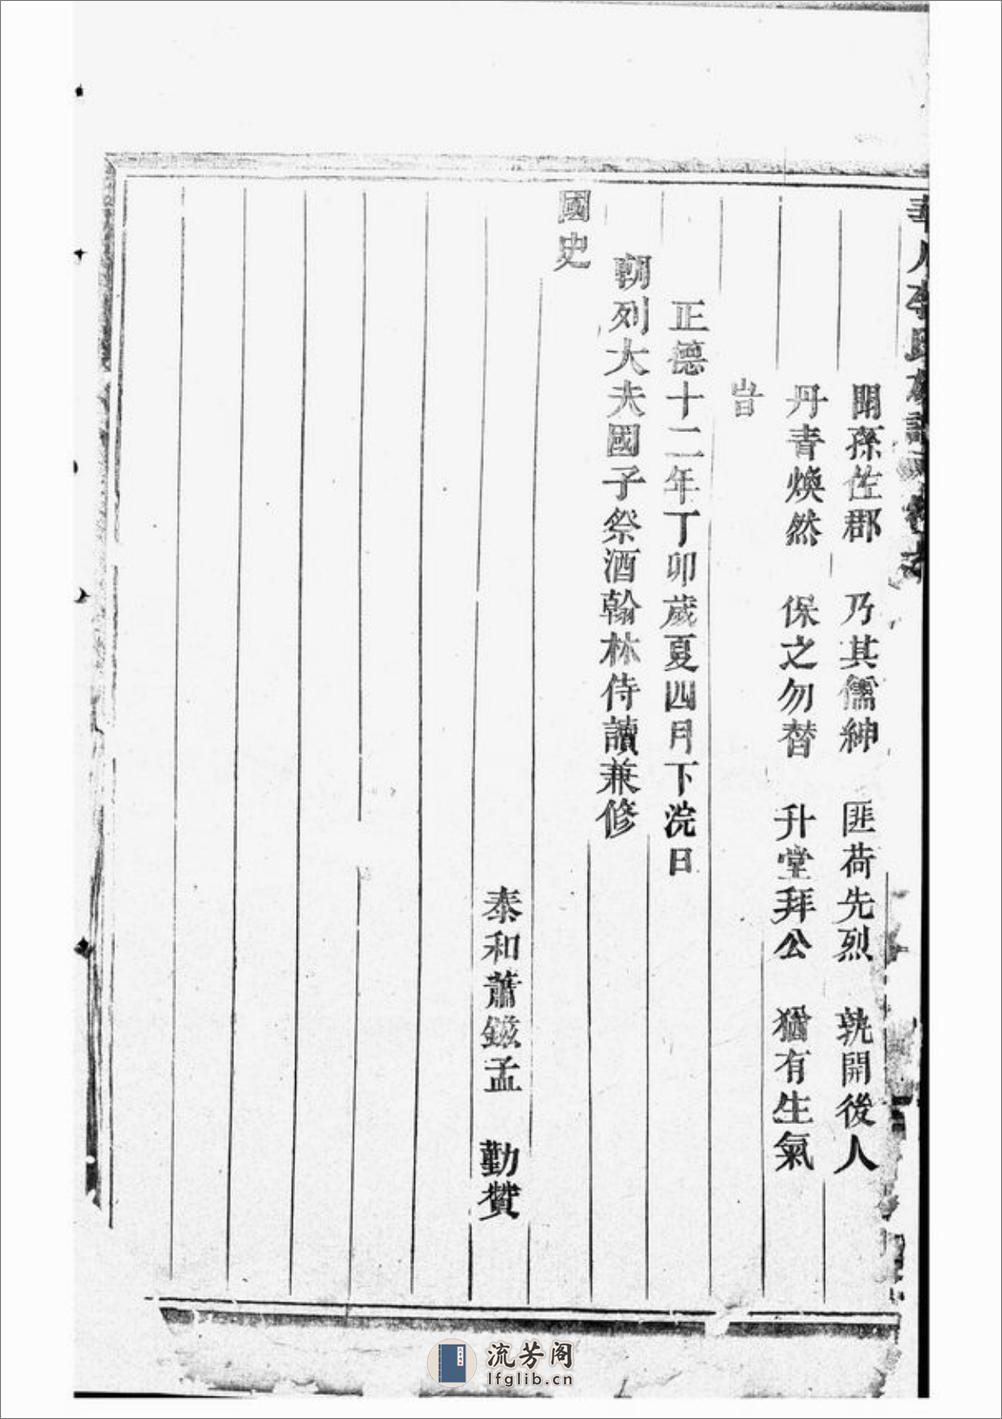 聞孫莅郡 乃其儒紳 匪荷先烈 孰開後人
丹青煥然 保之勿替 升堂拜公 猶有生氣
旹
正德十二年丁卯歲夏四月下浣日
朝列大夫國子祭酒翰林侍讀兼修
國史
泰和蕭鎡孟 勤贊
流芳阁
lfglib.cn